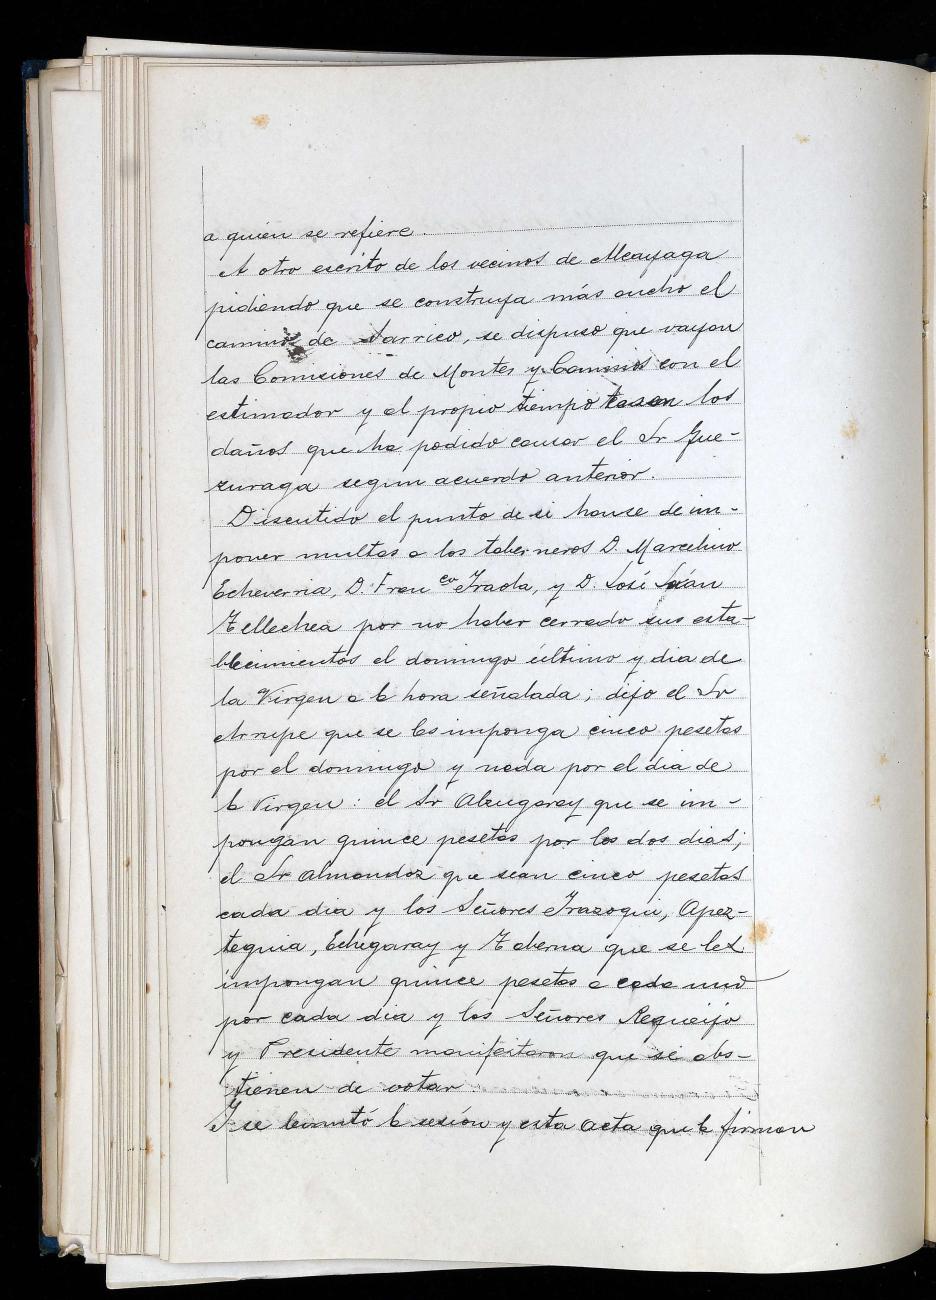 a quien se refiere.
A otro escrito de los vecinos de Alcayaga
pidiendo que se construya más ancho el
camino de Sarrico, se dispuso que vayan
las Comisiones de Montes y Caminos con el
estimador y al propio tiempo tasen los
daños que ha podido causar el Sr Gue-
zuraga segun acuerdo anterior.
Discutido el punto de si hanse de im-
poner multas a los taberneros D. Marcelino
Echeverria, D. Franco Iraola, y D. José Juan
Tellechea por no haber cerrado sus esta-
blecimientos el domingo último y dia de
la Virgen a la hora señalada; dijo el Sr
Arrupe que se les imponga cinco pesetas
por el domingo y nada por el dia de
la Virgen: el Sr Alzugaray que se im-
pongan quince pesetas por los dos dias;
el Sr Almandoz que sean cinco pesetas
cada dia y los Señores Irazoqui, Apez-
teguia, Echegaray y Taberna que se les
impongan quince pesetas a cada uno
por cada dia y los Señores Requeijo
y Presidente manifestaron que se abs-
tienen de votar
Y se levantó la sesión y esta acta que la firman